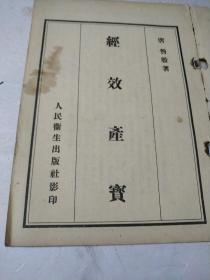 唐 昝殷著
經效產寶
人民衞生出版社影印